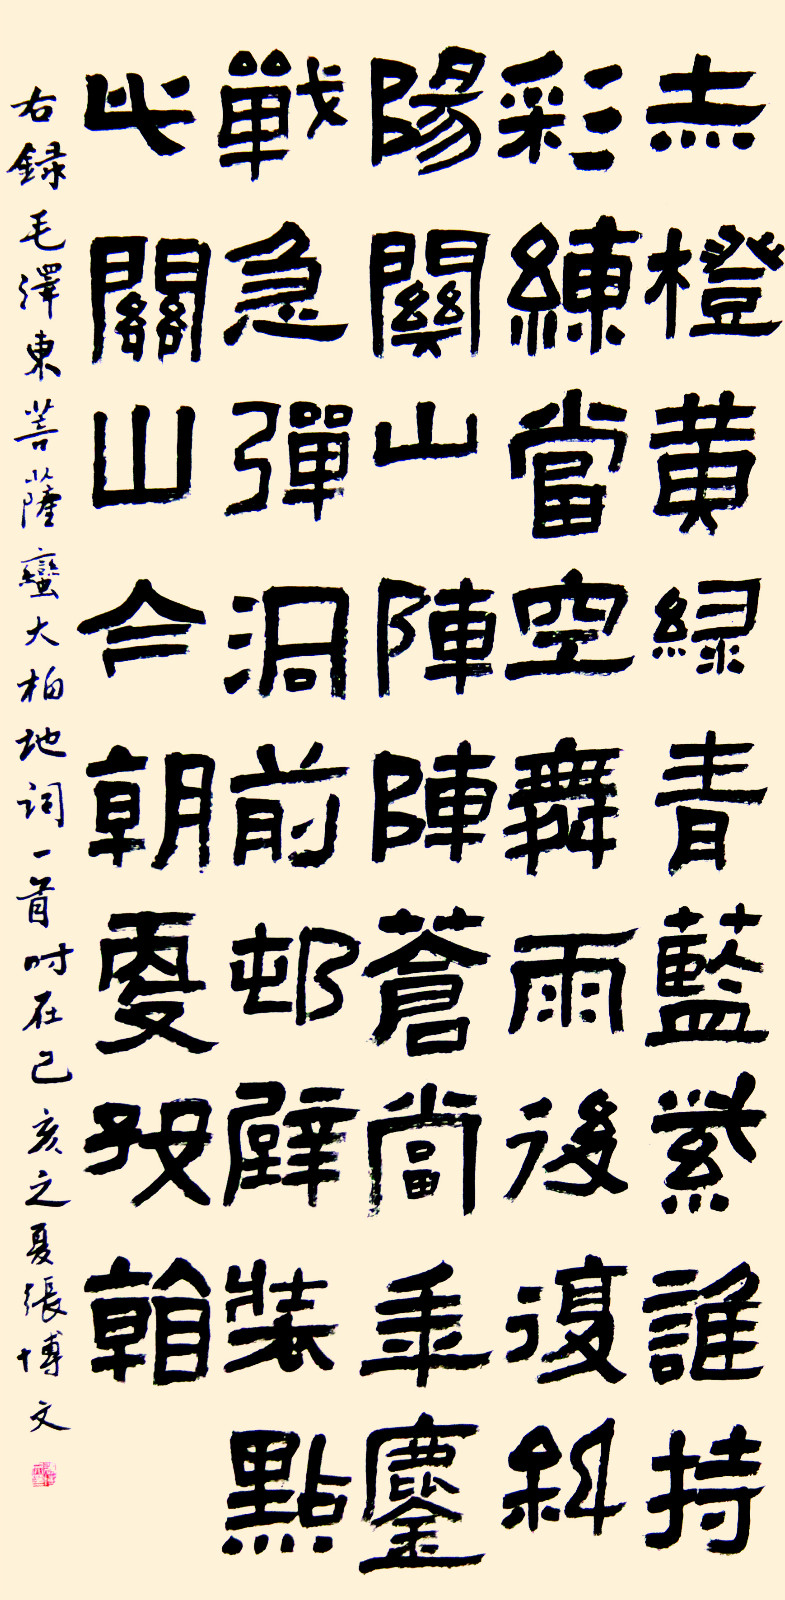 赤橙黄緑青藍紫誰持
彩練當空舞雨後復斜
陽關山陣陣蒼當年鏖
戰急彈洞前邨壁裝點
此關山今朝更好看
右録毛澤東菩薩蠻大柏地詞一首时在己亥之夏張博文